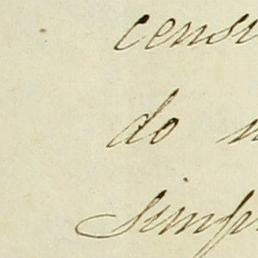 censu
do
simp